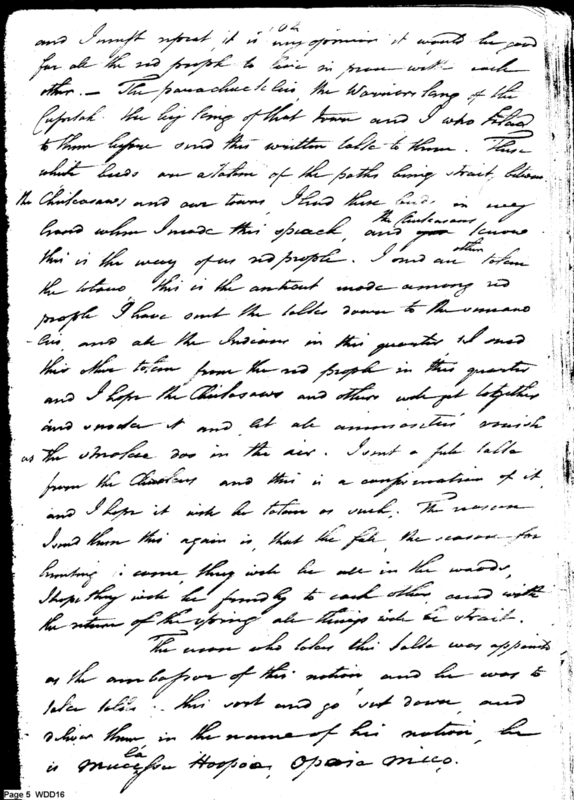 and I must repeat, it is my opinion it would be good
for all the red people to live in peace with each
other. — The the Warriors King of the
the big King of that town and I who
to them before send this written talk to them. These
white beads are a token of the paths being strait, between
the Chickasaws and our towns, I had these beads in my
hand when I made this speach, and the Chickasaws know
this is the way of us red people. I send an other token
the tobaco this is the antient mode among red
people I have sent the talks down to the
and all the Indians in this quarter & I send
this other token from the red people in this quarter
and I hope the Chickasaws and others will get together
and smoke it and let all vanish
as the smoke dos in the air. I sent a full talk
from the and this is a confirmation of it,
and I hope it will be taken as such. The reason
I send them this again is, that the fall, the season for
hunting is come, they will be all in the woods,
I hope they will be friendly to each other, and with
the return of the spring all things will be strait.
The man who takes this talk was appointed
as the ambassor of this nation and he was to
take talks this sort and go set down, and
deliver them in the name of his nation, he
is Hoopoie, Opoie Mico.
Page 5 WDD16